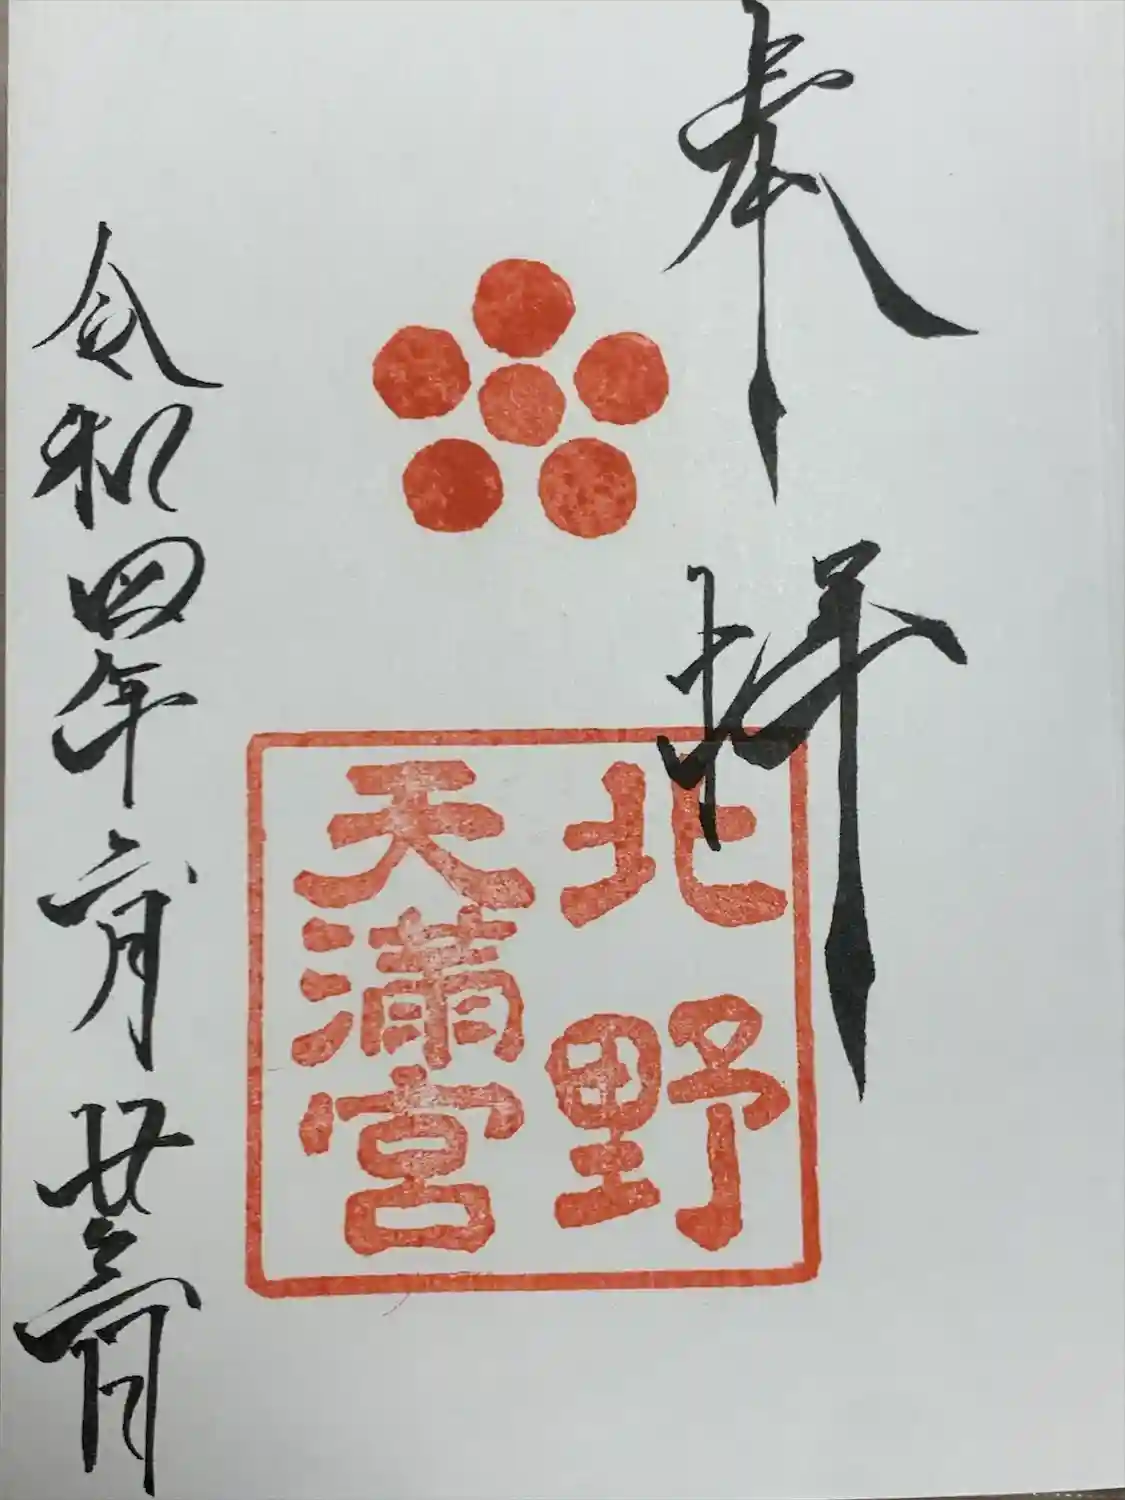 奉拝
北野
天満宮
令和四年二月廿三日